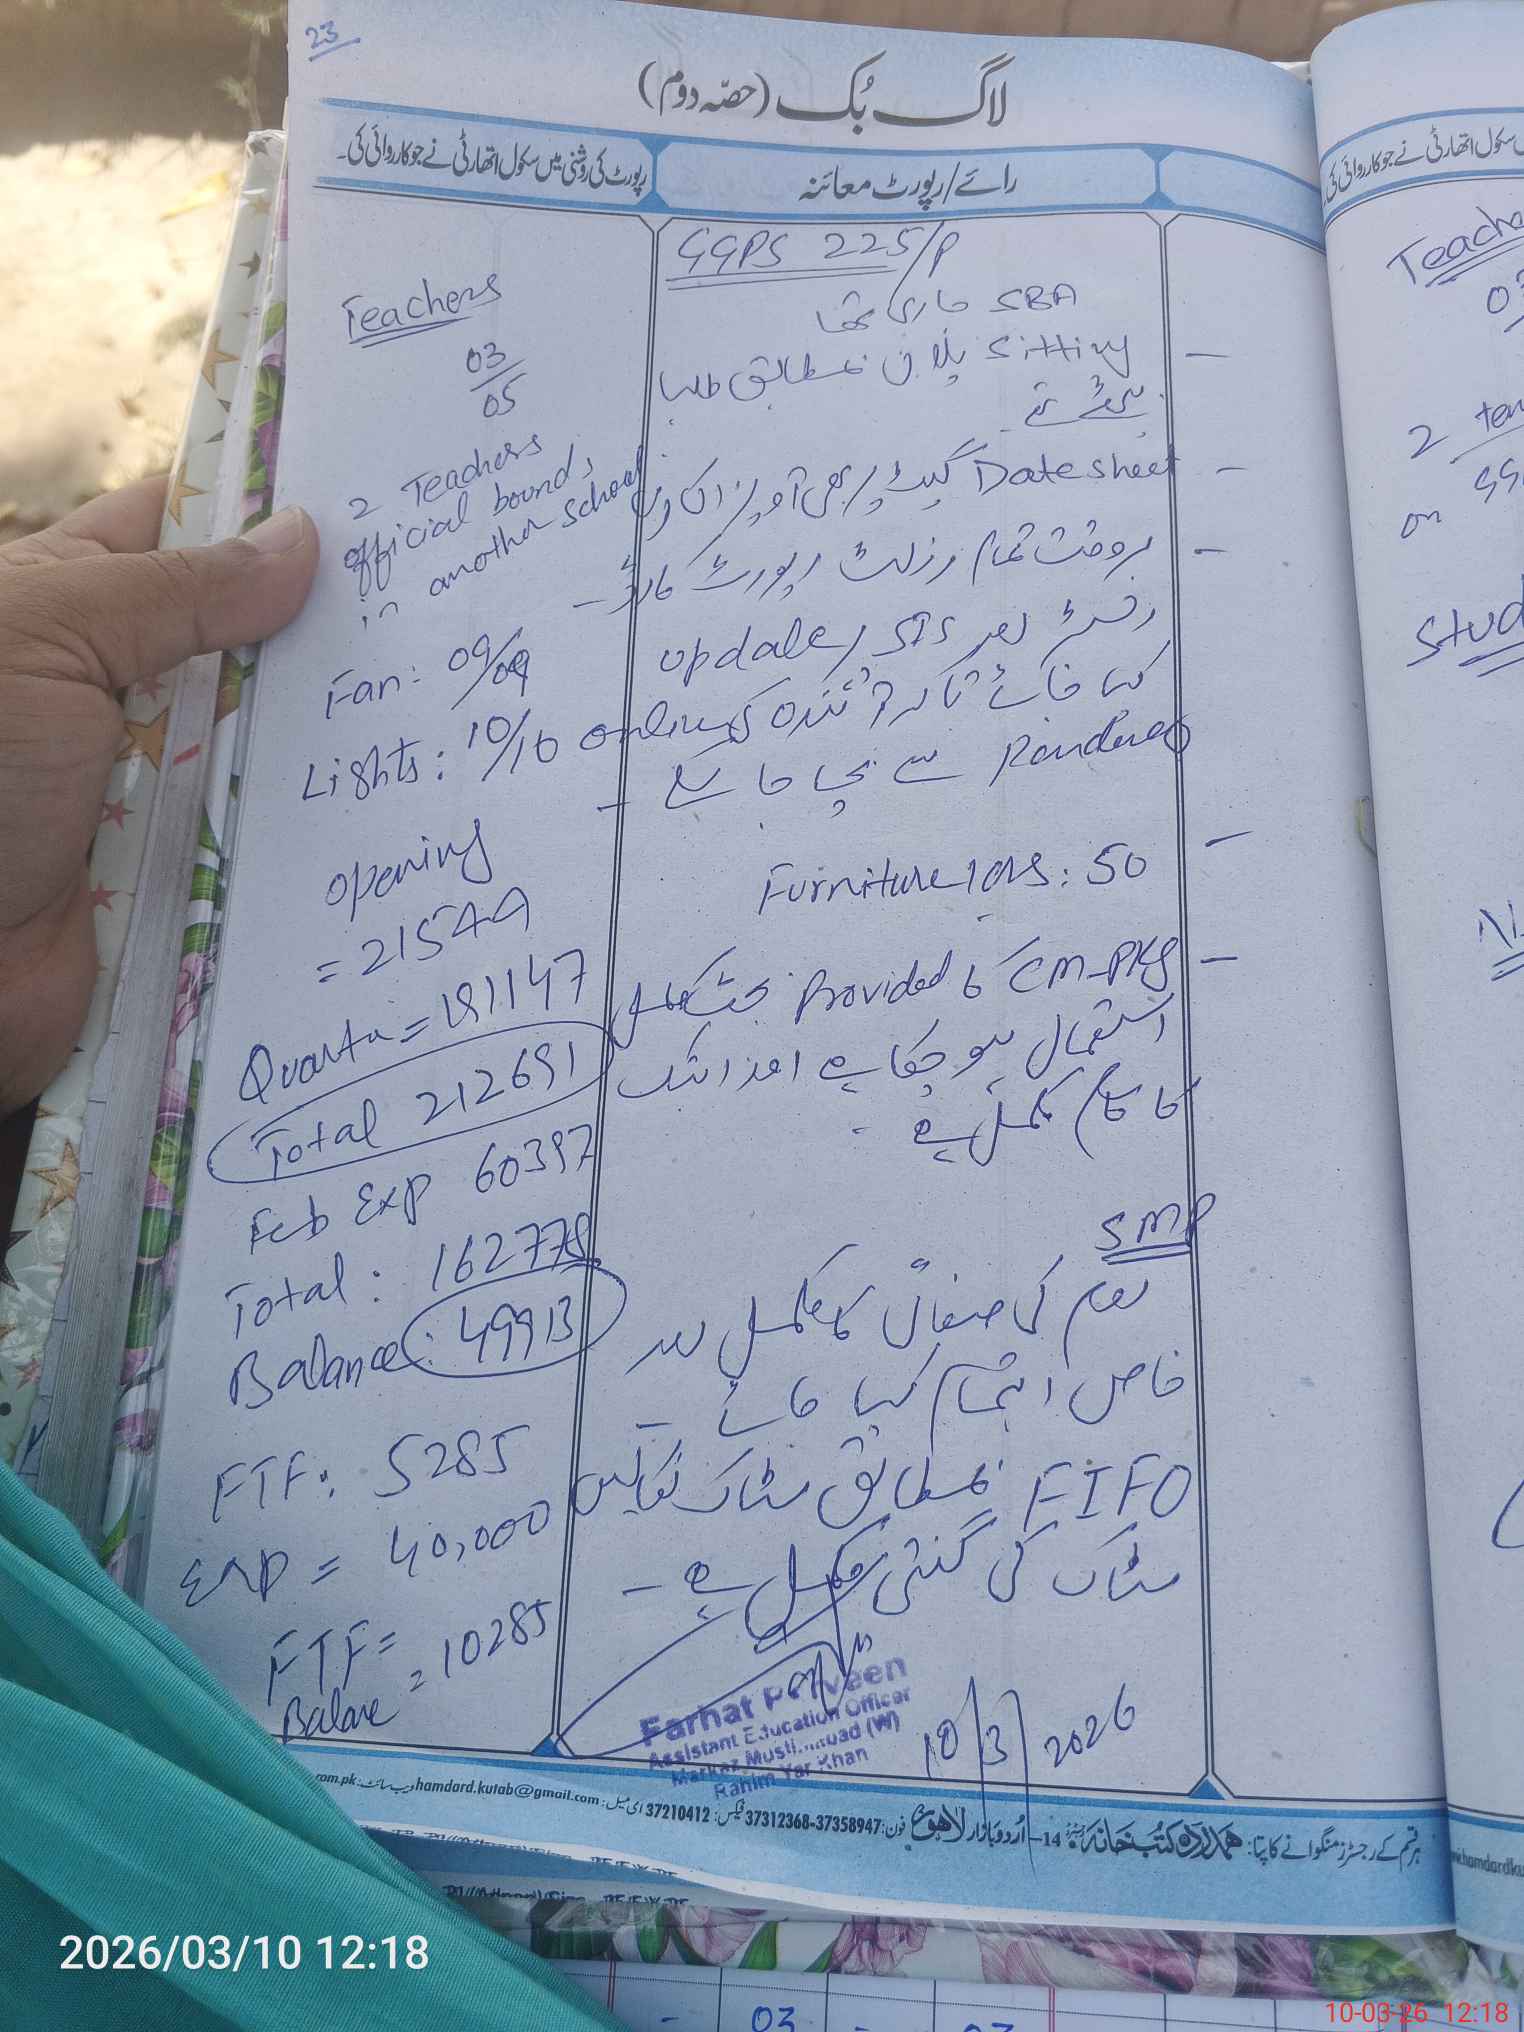 23
لاگ بُک (حصّہ دوم)
رائے/رپورٹ معائنہ
رپورٹ کی روشنی میں سکول اتھارٹی نے جو کارروائی کی۔
GGPS 225/P
SBA جاری تھا
Sitting پلان بمطابق طلبا
بیٹھے تھے
Datesheet گیٹ پر بھی آویزاں کریں
بروقت تمام رزلٹ رپورٹ کارڈ
SIS update
کیا جائے تاکہ آئندہ کی
سے بچا جا سکے
Furniture : 50
CM-PKG کا Provided بجٹ مکمل
استعمال ہو چکا ہے اور
کا کام مکمل ہے
SMP
روم کی صفائی کا مکمل اور
خاص اہتمام کیا جائے
FIFO بمطابق سٹاک نکالیں
سٹاک کی گنتی مکمل ہے
Teachers
03
05
2 Teachers
official bound,
in another school
Fan: 09/09
Lights: 10/10
opening
= 21544
= 191147
Total 212691
Feb Exp 60397
Total: 162778
Balance: 49913
FTF: 5285
Exp = 40,000
FTF =
Balance = 10285
Farhat Perveen
Assistant Education Officer
Markaz (W)
Rahim Yar Khan
10/3/2026
ہر قسم کے رجسٹر منگوانے کا پتا: ہمدرد کتب خانہ 14- اُردو بازار لاہور فون: 37312368-37358947 فیکس: 37210412 ای میل: hamdard.kutab@gmail.com ویب سائٹ:
سکول اتھارٹی نے جو کارروائی کی
03
2
on
2026/03/10 12:18
03
10-03-26 12:18